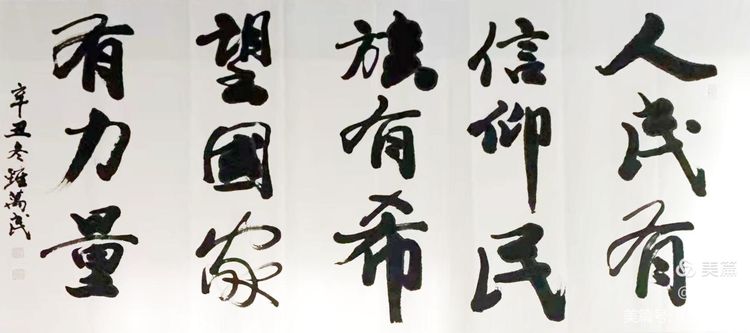 人民有
信仰民
族有希
望國家
有力量
辛丑冬鍾萬民
美篇